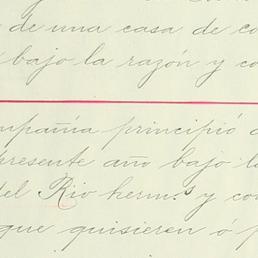 de una casa de co
bajo la razón y co
mpañia principió a
presente año bajo la
del Rio herm.s y con
que quisieren ó p